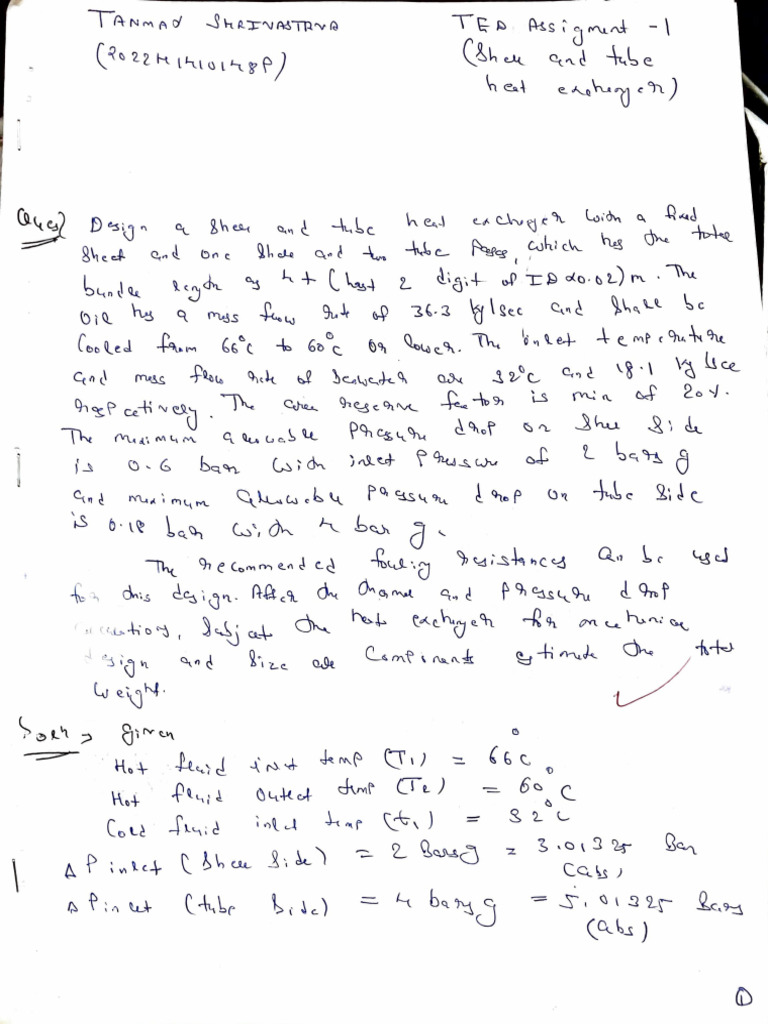 TANMAY SHRIVASTAVA
TED Assigment -1
(2022H1410148P)
(Shell and tube
heat exchanger)
Ques) Design a shell and tube heat exchanger with a fixed
sheet and one shell and two tube passes, which has the total
bundle length as 4 + (last 2 digit of ID x0.02) m. The
oil has a mass flow rate of 36.3 kg/sec and shall be
cooled from 66°C to 60°C or lower. The inlet temperature
and mass flow rate of seawater are 32°C and 18.1 kg/sec
respectively. The area reserve factor is min of 20%.
The maximum allowable pressure drop on shell side
is 0.6 bar with inlet pressure of 2 bars g
and maximum allowable pressure drop on tube side
is 0.18 bar with 4 bar g.
The recommended fouling resistances can be used
for this design. After the thermal and pressure drop
, subject the heat exchanger for mechanical
and size all components estimate the total
weight.
Soln → given
Hot fluid inlet temp (T1) = 66°C
Hot fluid outlet temp (T2) = 60°C
Cold fluid inlet temp (t1) = 32°C
ΔP inlet (shell side) = 2 Barsg = 3.01325 Bar
(abs)
ΔP inlet (tube side) = 4 barsg = 5.01325 Bars
(abs)
1